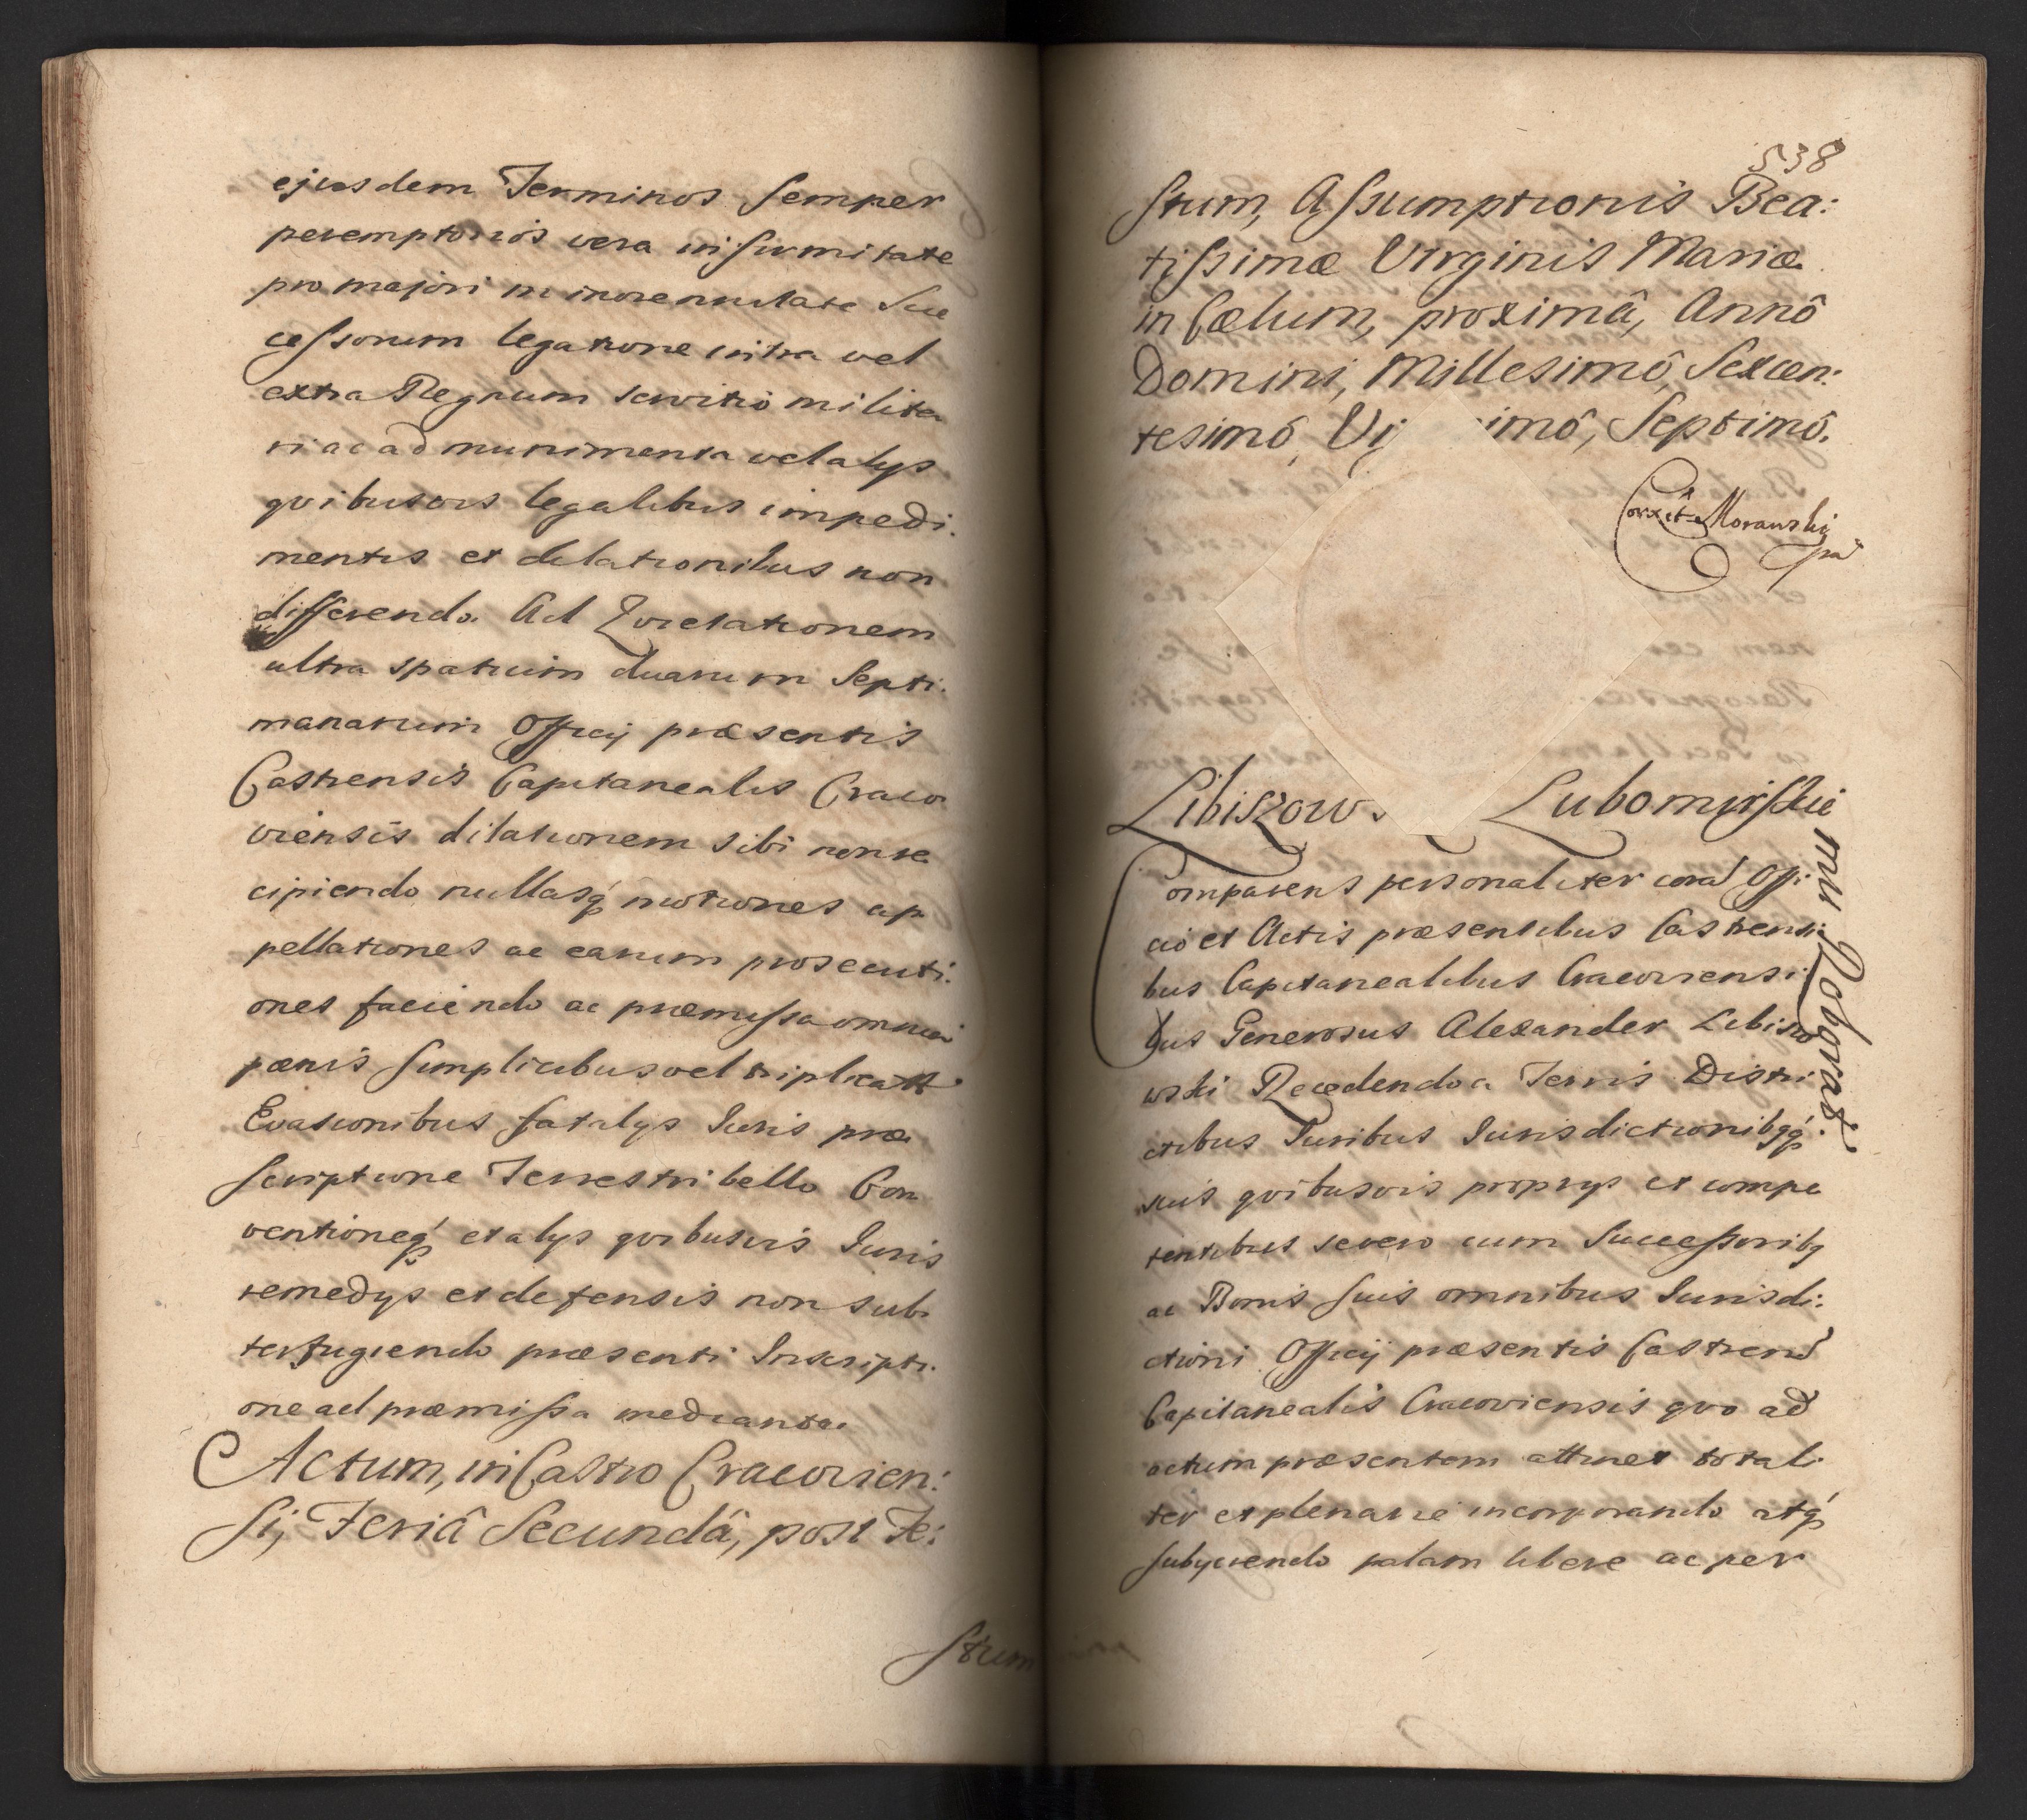 ejusdem Terminos semper
peremptorios vera infirmitate
pro majori minorennitate Suc
cessorum legatione intra vel
extra Regnum servitio milita
ri ac ad munimenta vel alys
qvibusvis legalibus impedi:
mentis et dilationibus non
differendo. Ad Qvietationem
ultra spatium duarum Septi:
manarum Officij præsentis
Castrensis Capitanealis Craco
viensis dilationem sibi non re
cipiendo nullasq́ motiones ap
pellationes ac earum prosecuti:
ones faciendo ac præmissa omnia
pænis simplicibus vel triplicatt
Evasionibus fatalys Iuris præ
scriptione Terrestri bello Con
ventioneq́ et alys qvibusvis Iuris
remedys et defensis non sub
terfugiendo præsenti Inscripti:
one ad præmissa mediante.
Actum, in Castro Cracovien:
si, Feriâ Secundâ, post Fe:
stum
538
stum, Assumptionis Bea:
tissimæ Virginis Mariæ
in Cælum, proximâ, Annô
Domini, Millesimô, Sexcen:
tesimô, Vi imô, Septimô.
Corexit Morawski
mp
Libiszow. Lubomirskie
mu Roborat.
Comparens personaliter corā Offi:
cio et Actis præsentibus Castrensi
bus Capitanealibus Cracoviensi:
bus Generosus Alexander Libiszo
wski Recedendo a Terris Distri
ctibus Iuribus Iurisdictionibq́
suis qvibusvis proprys et compe
tentibus se vero cum Successoribq
ac Bonis suis omnibus Iurisdi:
ctioni Officij præsentis Castreñ
Capitanealis Cracoviensis qvo ad
actum præsentem attinet totali
ter et plenarie incorporando atq́
subyciendo palam libere ac per